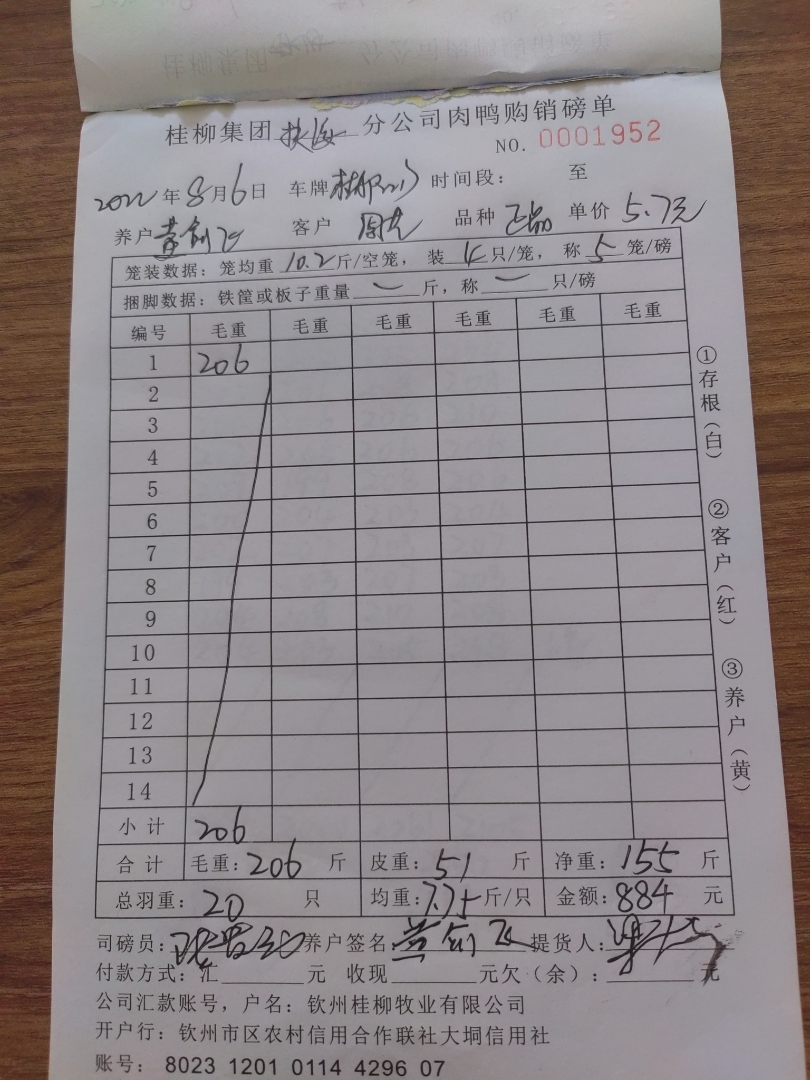 桂柳集团 分公司肉鸭购销磅单
NO. 0001952
2022年8月6日 车牌 时间段: 至
养户 客户 品种 正品 单价 5.7元
笼装数据: 笼均重 10.2 斤/空笼, 装 4 只/笼, 称 5 笼/磅
捆脚数据: 铁筐或板子重量 一 斤, 称 一 只/磅
编号 毛重 毛重 毛重 毛重 毛重 毛重
1 206
2
3
4
5
6
7
8
9
10
11
12
13
14
小计 206
合计 毛重: 206 斤 皮重: 51 斤 净重: 155 斤
总羽重: 20 只 均重: 7.75 斤/只 金额: 884 元
司磅员: 养户签名 提货人:
付款方式: 汇 元 收现 元欠(余): 元
公司汇款账号, 户名: 钦州桂柳牧业有限公司
开户行: 钦州市区农村信用合作联社大垌信用社
账号: 8023 1201 0114 4296 07
①存根(白)
②客户(红)
③养户(黄)